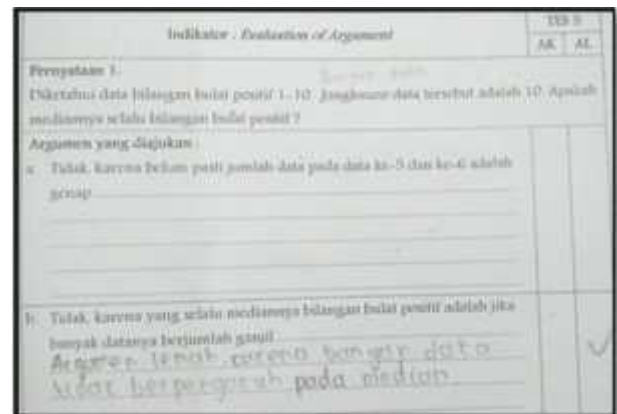 Indikator : Evaluation of Argument
TES II
AK AL
Pernyataan 1.
Banyak data
Diketahui data bilangan bulat positif 1-10. Jangkauan data tersebut adalah 10. Apakah
mediannya selalu bilangan bulat positif ?
Argumen yang diajukan :
a. Tidak, karena belum pasti jumlah data pada data ke-5 dan ke-6 adalah
genap
b. Tidak, karena yang selalu mediannya bilangan bulat positif adalah jika
banyak datanya berjumlah ganjil
Argumen lemah karena banyak data
tidak berpengaruh pada median